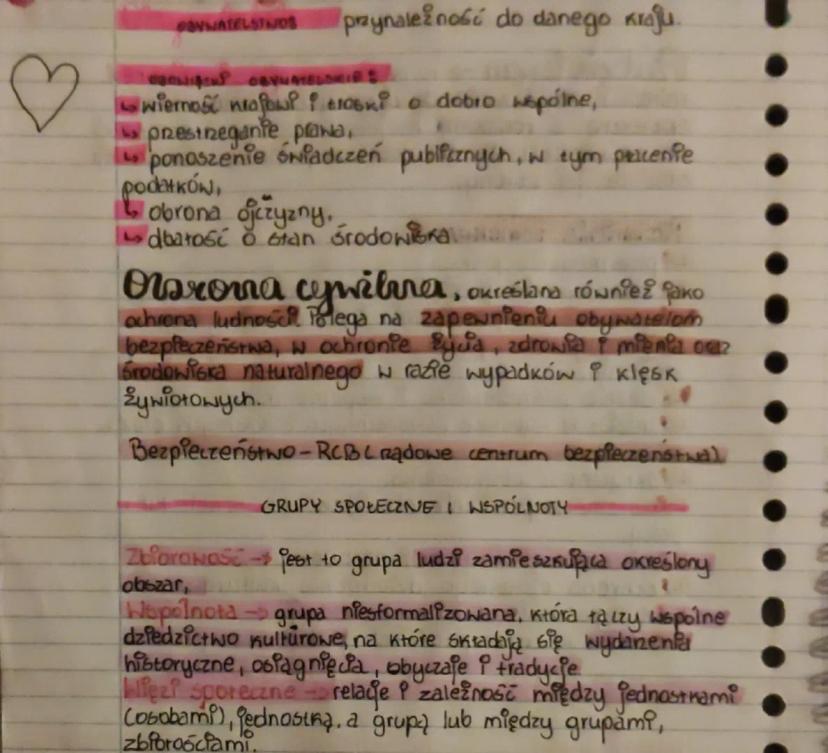 OBYWATELSTWO przynależność do danego kraju.
OBOWIĄZKI OBYWATELSKIE:
↳ wierność krajowi i troski o dobro wspólne,
↳ przestrzeganie prawa,
↳ ponoszenie świadczeń publicznych, w tym płacenie
podatków,
↳ obrona ojczyzny,
↳ dbałość o stan środowiska
Obrona cywilna, określana również jako
ochrona ludności. Polega na zapewnieniu obywatelom
bezpieczeństwa, w ochronie życia, zdrowia i mienia oraz
środowiska naturalnego w razie wypadków i klęsk
żywiołowych.
Bezpieczeństwo - RCB (rządowe centrum bezpieczeństwa)
GRUPY SPOŁECZNE I WSPÓLNOTY
Zbiorowość → jest to grupa ludzi zamieszkująca określony
obszar,
Wspólnota → grupa niesformalizowana, która łączy wspólne
dziedzictwo kulturowe, na które składają się wydarzenia
historyczne, osiągnięcia, obyczaje i tradycje
Więzi społeczne → relacje i zależność między jednostkami
(osobami), jednostką, a grupą lub między grupami,
zbiorościami.